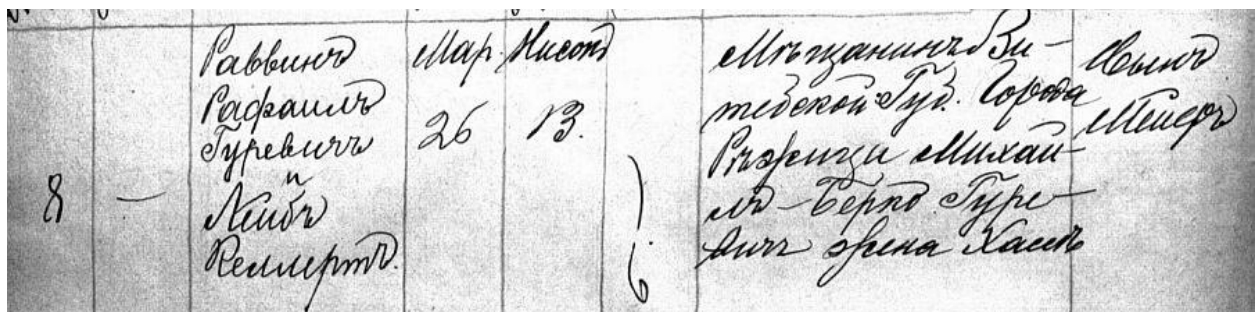 8
—
Раввинъ
Рафаилъ
Гуревичъ
и
Лейбъ
Келлертъ.
Мар.
26
Нисонъ
13.
Мѣщанинъ Ви-
тебской Губ. Города
Рѣжица Михаи-
лъ-Беркъ Гуре-
вичъ жена Хася
Сынъ
Меер